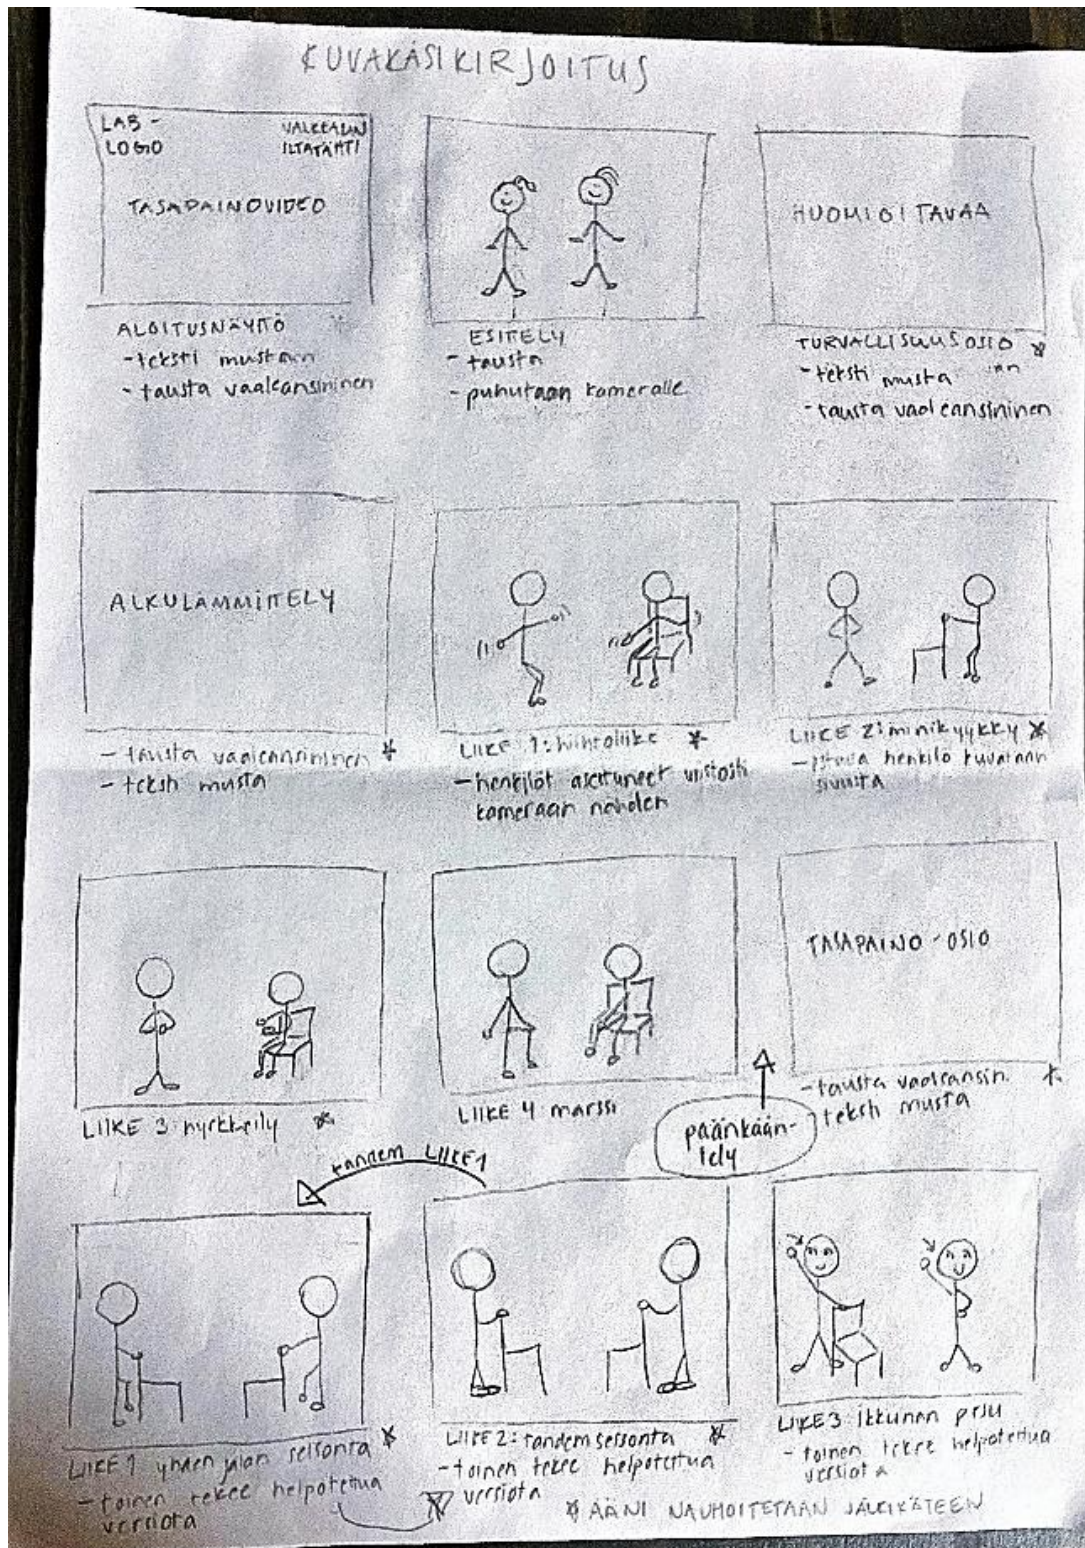 KUVAKÄSIKIRJOITUS
LAB-
LOGO
VALKEALAN
ILTATÄHTI
TASAPAINOVIDEO
ALOITUSNÄYTTÖ
- teksti mustan
- tausta vaaleansininen
ESITELY
- tausta
- puhutaan kameralle
HUOMIOITAVAA
TURVALLISUUSOSIO *
- teksti musta
- tausta vaaleansininen
ALKULÄMMITTELY
- tausta vaaleansininen *
- teksti musta
LIIKE 1: hiihtoliike *
- henkilöt asettuneet viistosti
kameraan nähden
LIIKE 2: minikyykky *
- istuva henkilö kuvataan
sivusta
LIIKE 3: nyrkkeily *
LIIKE 4: marssi
TASAPAINO-OSIO
- tausta vaaleansin. *
- teksti musta
päänkään-
tely
tandem LIIKE 1
LIIKE 1 yhden jalan seisonta *
- toinen tekee helpotettua
versiota
LIIKE 2: tandemseisonta *
- toinen tekee helpotettua
versiota
LIIKE 3: ikkunan pesu
- toinen tekee helpotettua
versiota
* ÄÄNI NAUHOITETAAN JÄLKIKÄTEEN